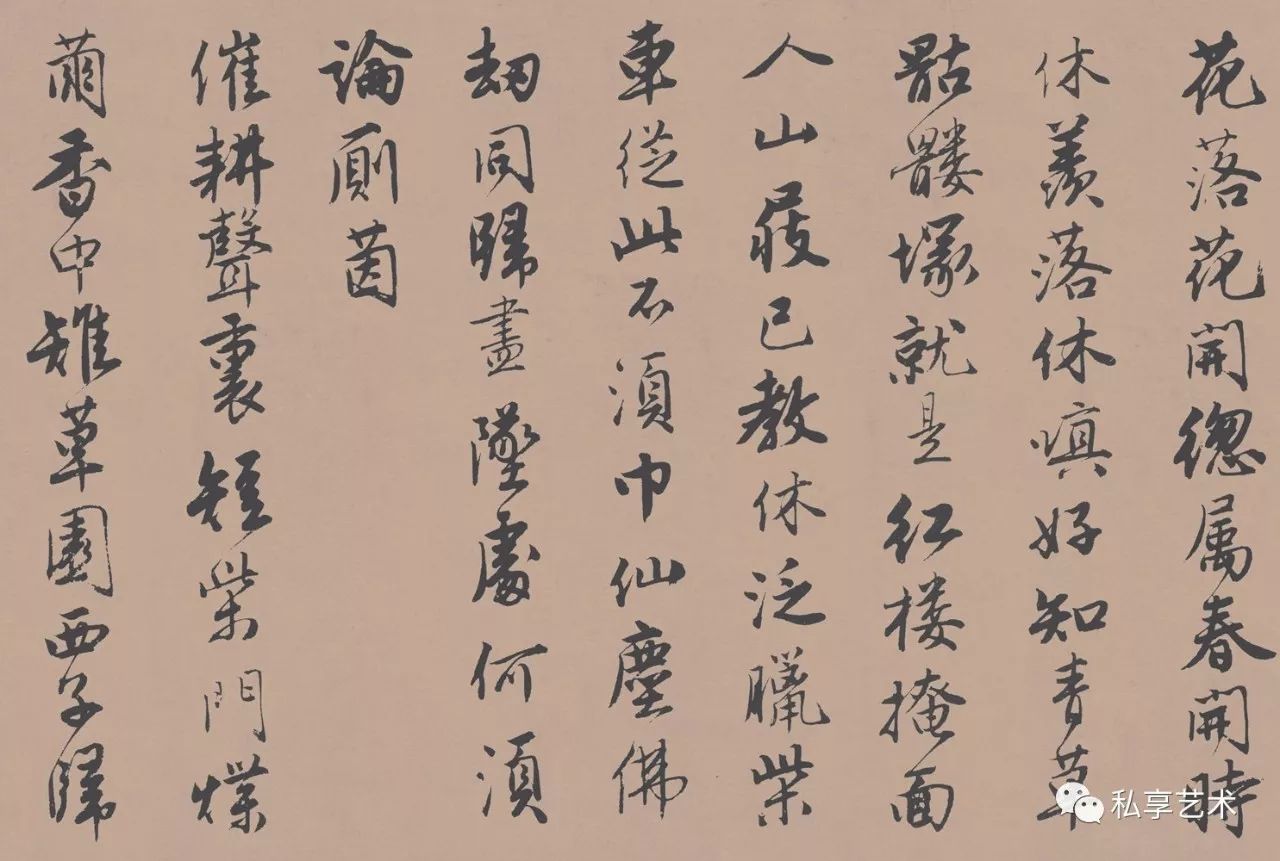 花落花開總属春開時
休羨落休嗔好知青草
骷髏塚就是红楼掩面
人山屐已教休泛臘柴
車從此不須巾仙塵佛
劫同歸盡墜處何須
論厠茵
催耕聲裏短柴門煠
繭香中雉草園西子歸
私享艺术